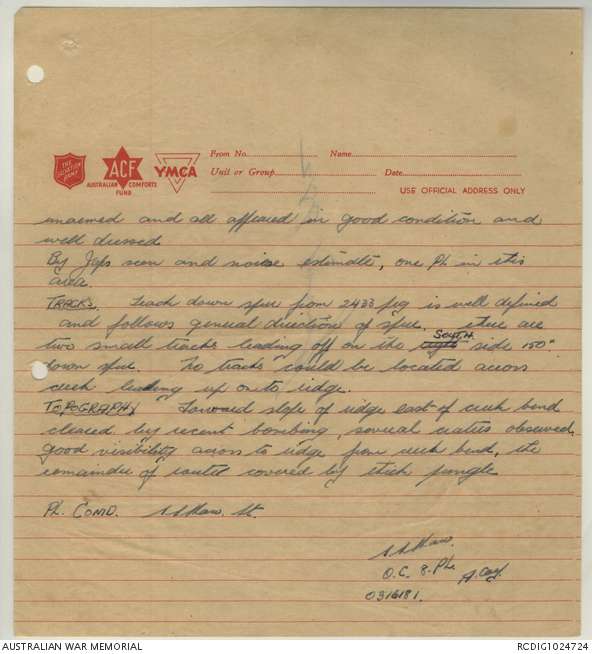 THE SALVATION ARMY
ACF
AUSTRALIAN COMFORTS
FUND
YMCA
From No. Name
Unit or Group Date
USE OFFICIAL ADDRESS ONLY
unarmed and all appeared in good condition and
well dressed.
By Japs seen and noise estimate, one Pl in this
area.
TRACKS. Track down spur from 2433 is well defined
and follows general direction of spur. There are
two small tracks leading off on the right SOUTH side 150x
down spur. No tracks could be located across
creek leading up on to ridge.
TOPOGRAPHY Forward slope of ridge east of creek bend
cleared by recent bombing, several craters observed,
good visibility across to ridge from creek bend, the
remainder of route covered by thick jungle
PL. COMD. Lt.
O.C. 8. Pl. A. Coy.